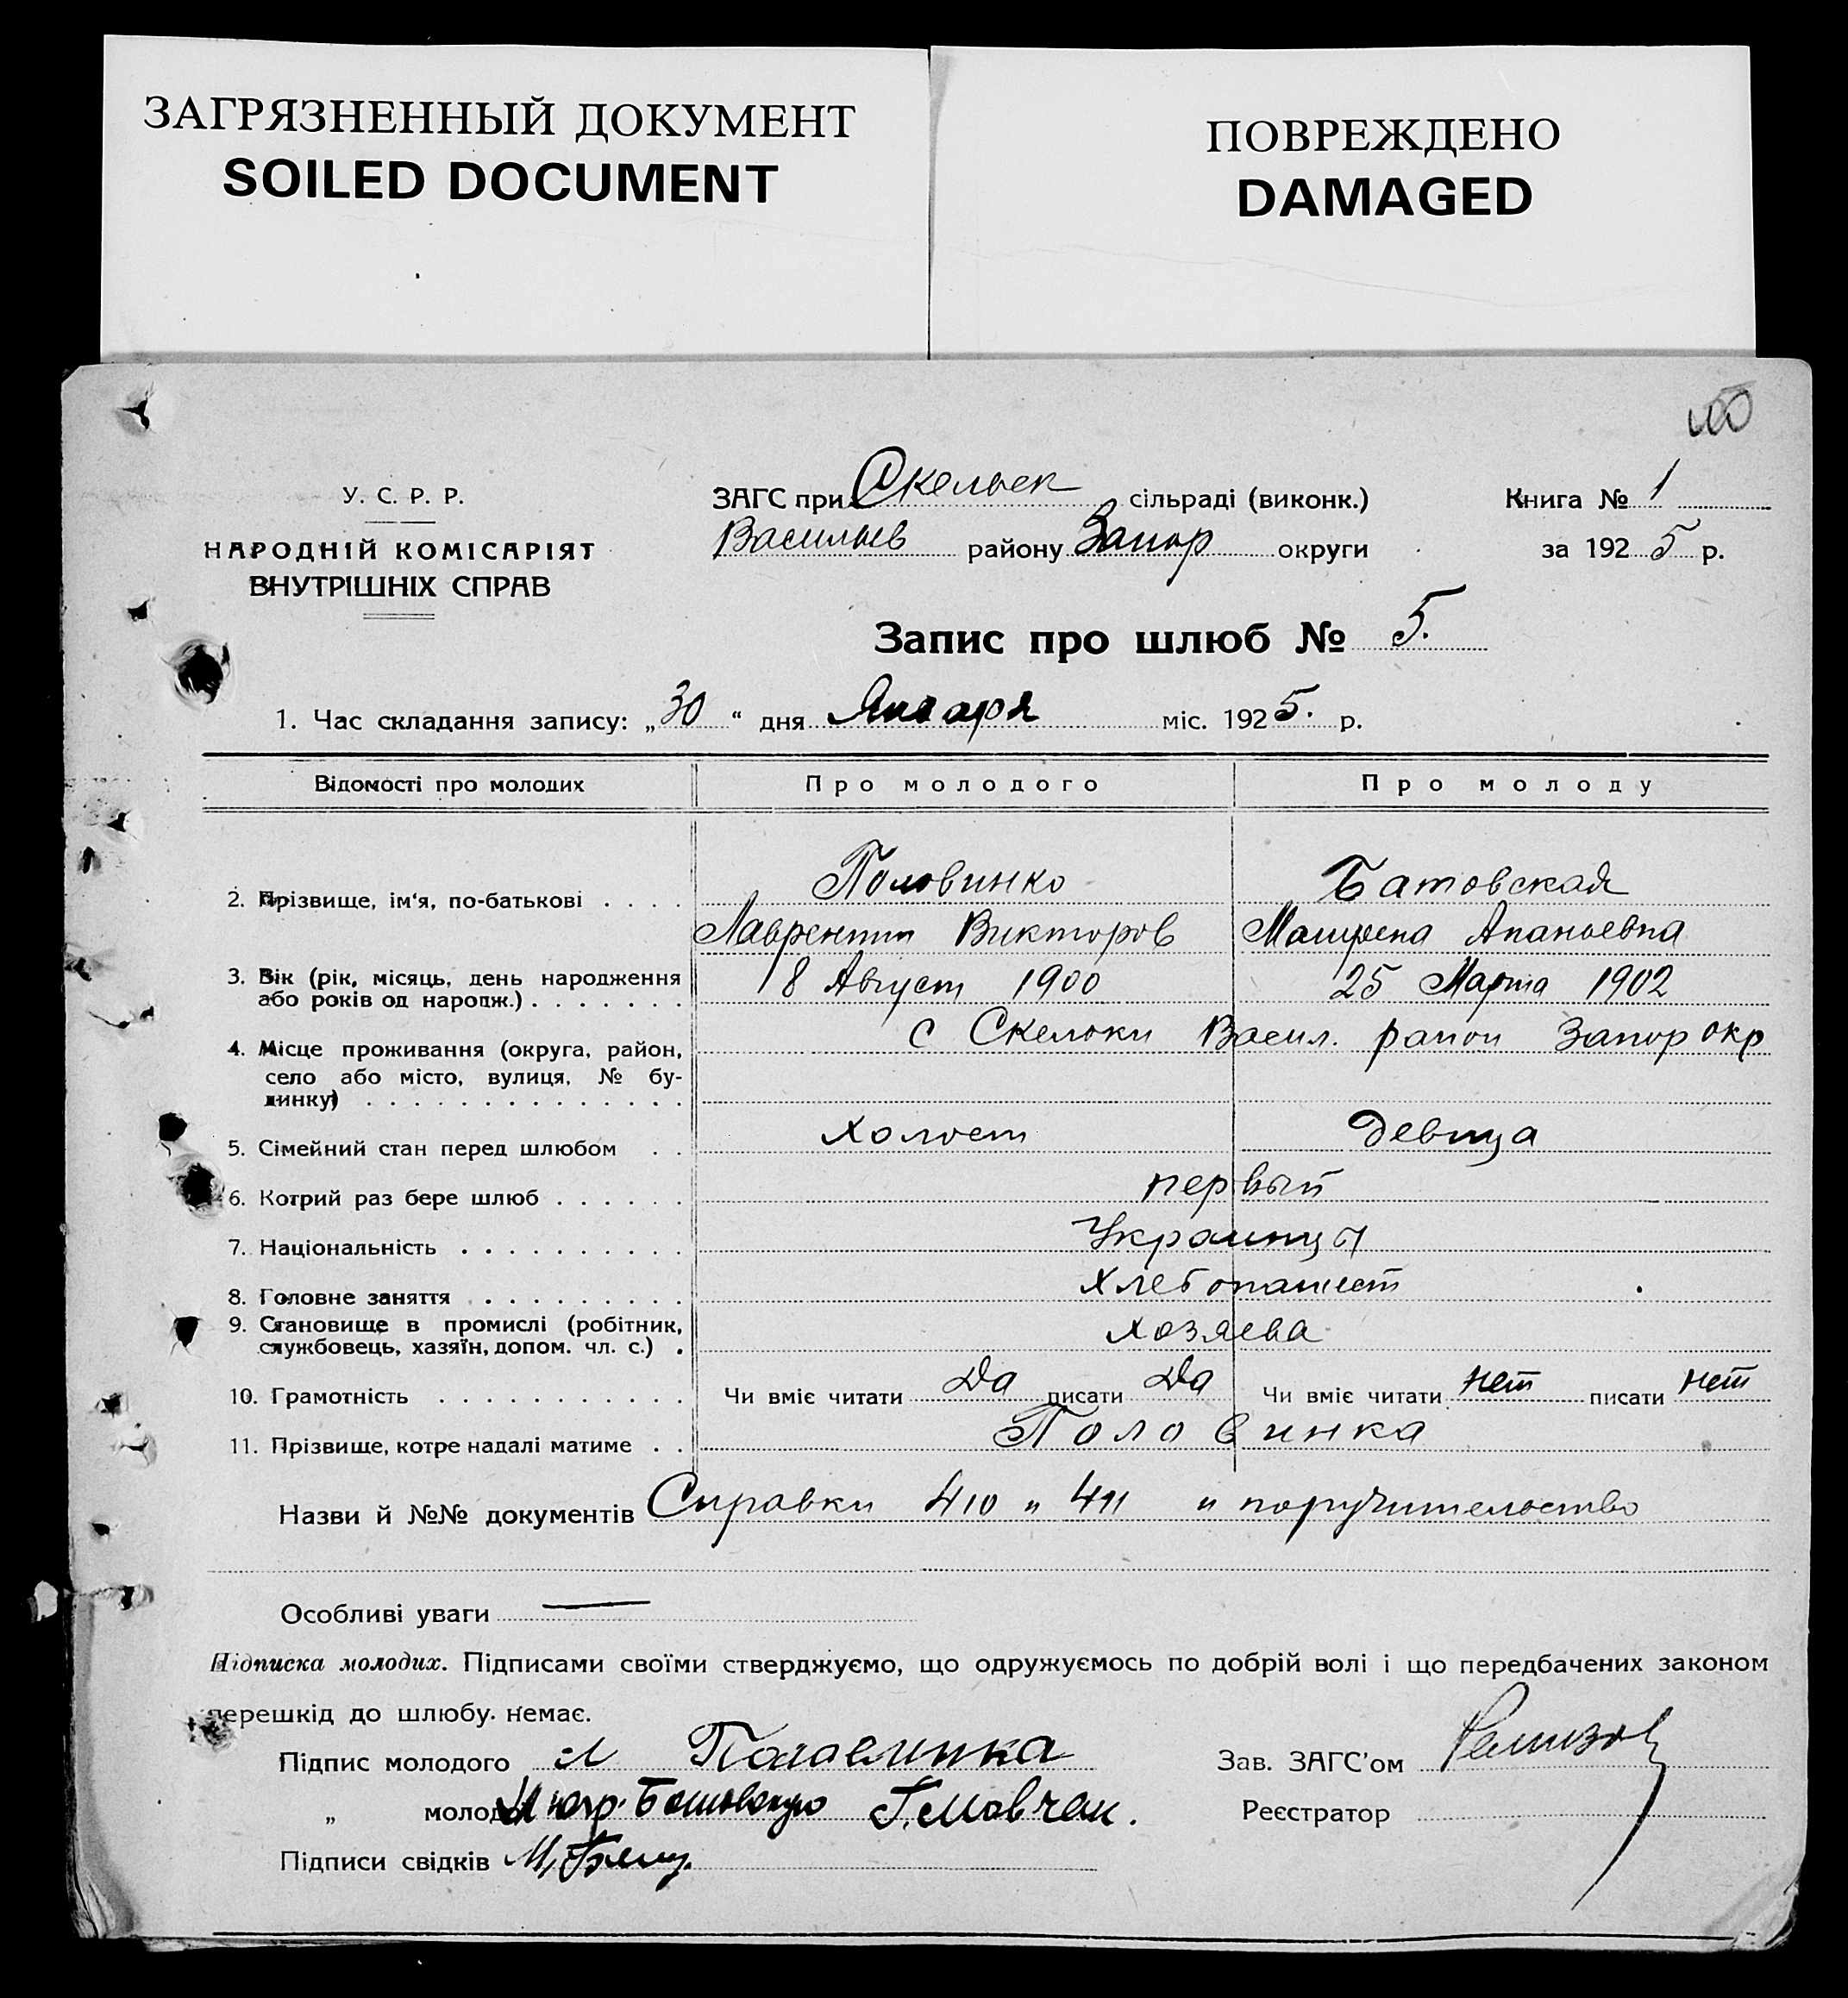 ЗАГРЯЗНЕННЫЙ ДОКУМЕНТ
SOILED DOCUMENT
ПОВРЕЖДЕНО
DAMAGED
У. С. Р. Р.
НАРОДНІЙ КОМІСАРІЯТ
ВНУТРІШНІХ СПРАВ
ЗАГС при Скельек сільраді (виконк.)
Васильев району Запор округи
Книга № 1
за 1925 р.
Запис про шлюб № 5.
1. Час складання запису: „30“ дня Января міс. 1925. р.
Відомості про молодих Про молодого Про молоду
Половинко Батовская
2. Прізвище, ім'я, по-батькові . . . .
Лаврентии Викторов Мотрена Апанасьевна
3. Вік (рік, місяць, день народження
або років од народж.) . . . . . . . 18 Август 1900 25 Марта 1902
4. Місце проживання (округа, район, с Скельки Васил. район Запор окр
село або місто, вулиця, № бу-
динку) . . . . . . . . . . . . . .
5. Сімейний стан перед шлюбом . . Холост Девица
6. Котрий раз бере шлюб . . . . . . первый
7. Національність . . . . . . . . . . Украинцы
8. Головне заняття . . . . . . . . . Хлебопашест
9. Становище в промислі (робітник,
службовець, хазяїн, допом. чл. с.) . Хозяева
10. Грамотність . . . . . . . . . . . Чи вміє читати Да писати Да Чи вміє читати нет писати нет
11. Прізвище, котре надалі матиме . . Половинка
Назви й №№ документів Справки 410 и 411 и поручительство
Особливі уваги —
Підписка молодих. Підписами своїми стверджуємо, що одружуємось по добрій волі і що передбачених законом
перешкід до шлюбу немає.
Підпис молодого Л Половинка Зав. ЗАГС'ом
„ молодої Батовскую Г. Мовчан. Реєстратор
Підписи свідків